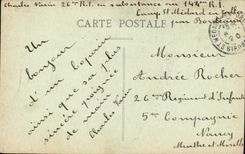 Charles Varin 26e R.I. en subsistance au 144e R.I.
Camp St Médard en Jalles
par Bordeaux
CARTE POSTALE
Un
bonjour
d'un copain
ainsi que sa plus
sincère poignée
de main
Charles Varin
Monsieur
André Rocher
26eme Régiment d'Infanterie
5e Compagnie
Nancy
Meurthe et Moselle